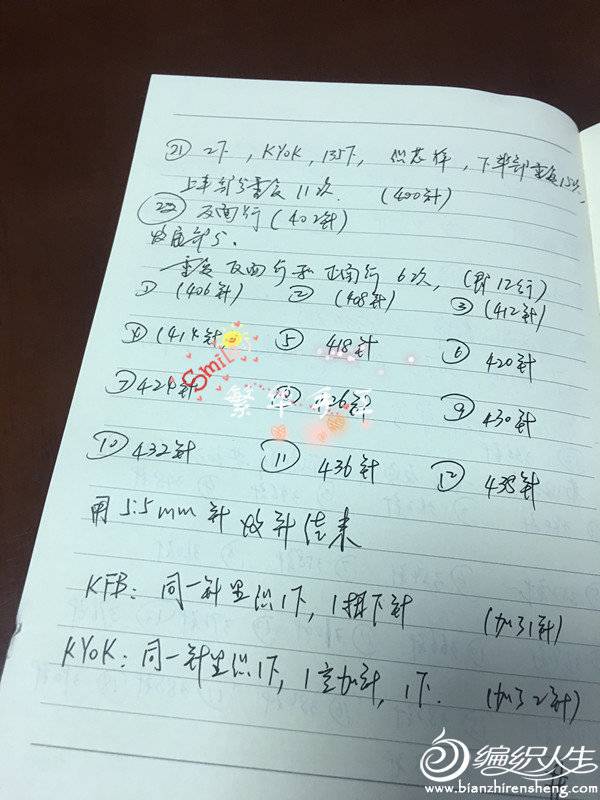 ㉑ 2下,KYOK,135下, 织花样,下半部重复15次,
上半部分重复11次. (400针)
㉒ 反面行(402针)
收尾部分.
重复反面行和正面行6次,(即12行)
① (406针) ② (408针) ③ (412针)
④ (414针) ⑤ 418针 ⑥ 420针
⑦ 424针 426针 ⑨ 430针
⑩ 432针 ⑪ 436针 ⑫ 438针
用5.5mm针收针结束
KFB:同一针里织1下,1扭下针 (加了1针)
KYOK:同一针里织1下,1空加针,1下. (加了2针)
Smile
繁华
编织人生
www.bianzhirensheng.com